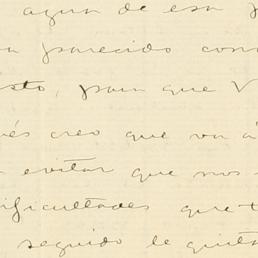 agua de esa
parecido con
sto, para que V
és creo que va á
evitar que nos
ificultades que
seguido le quita